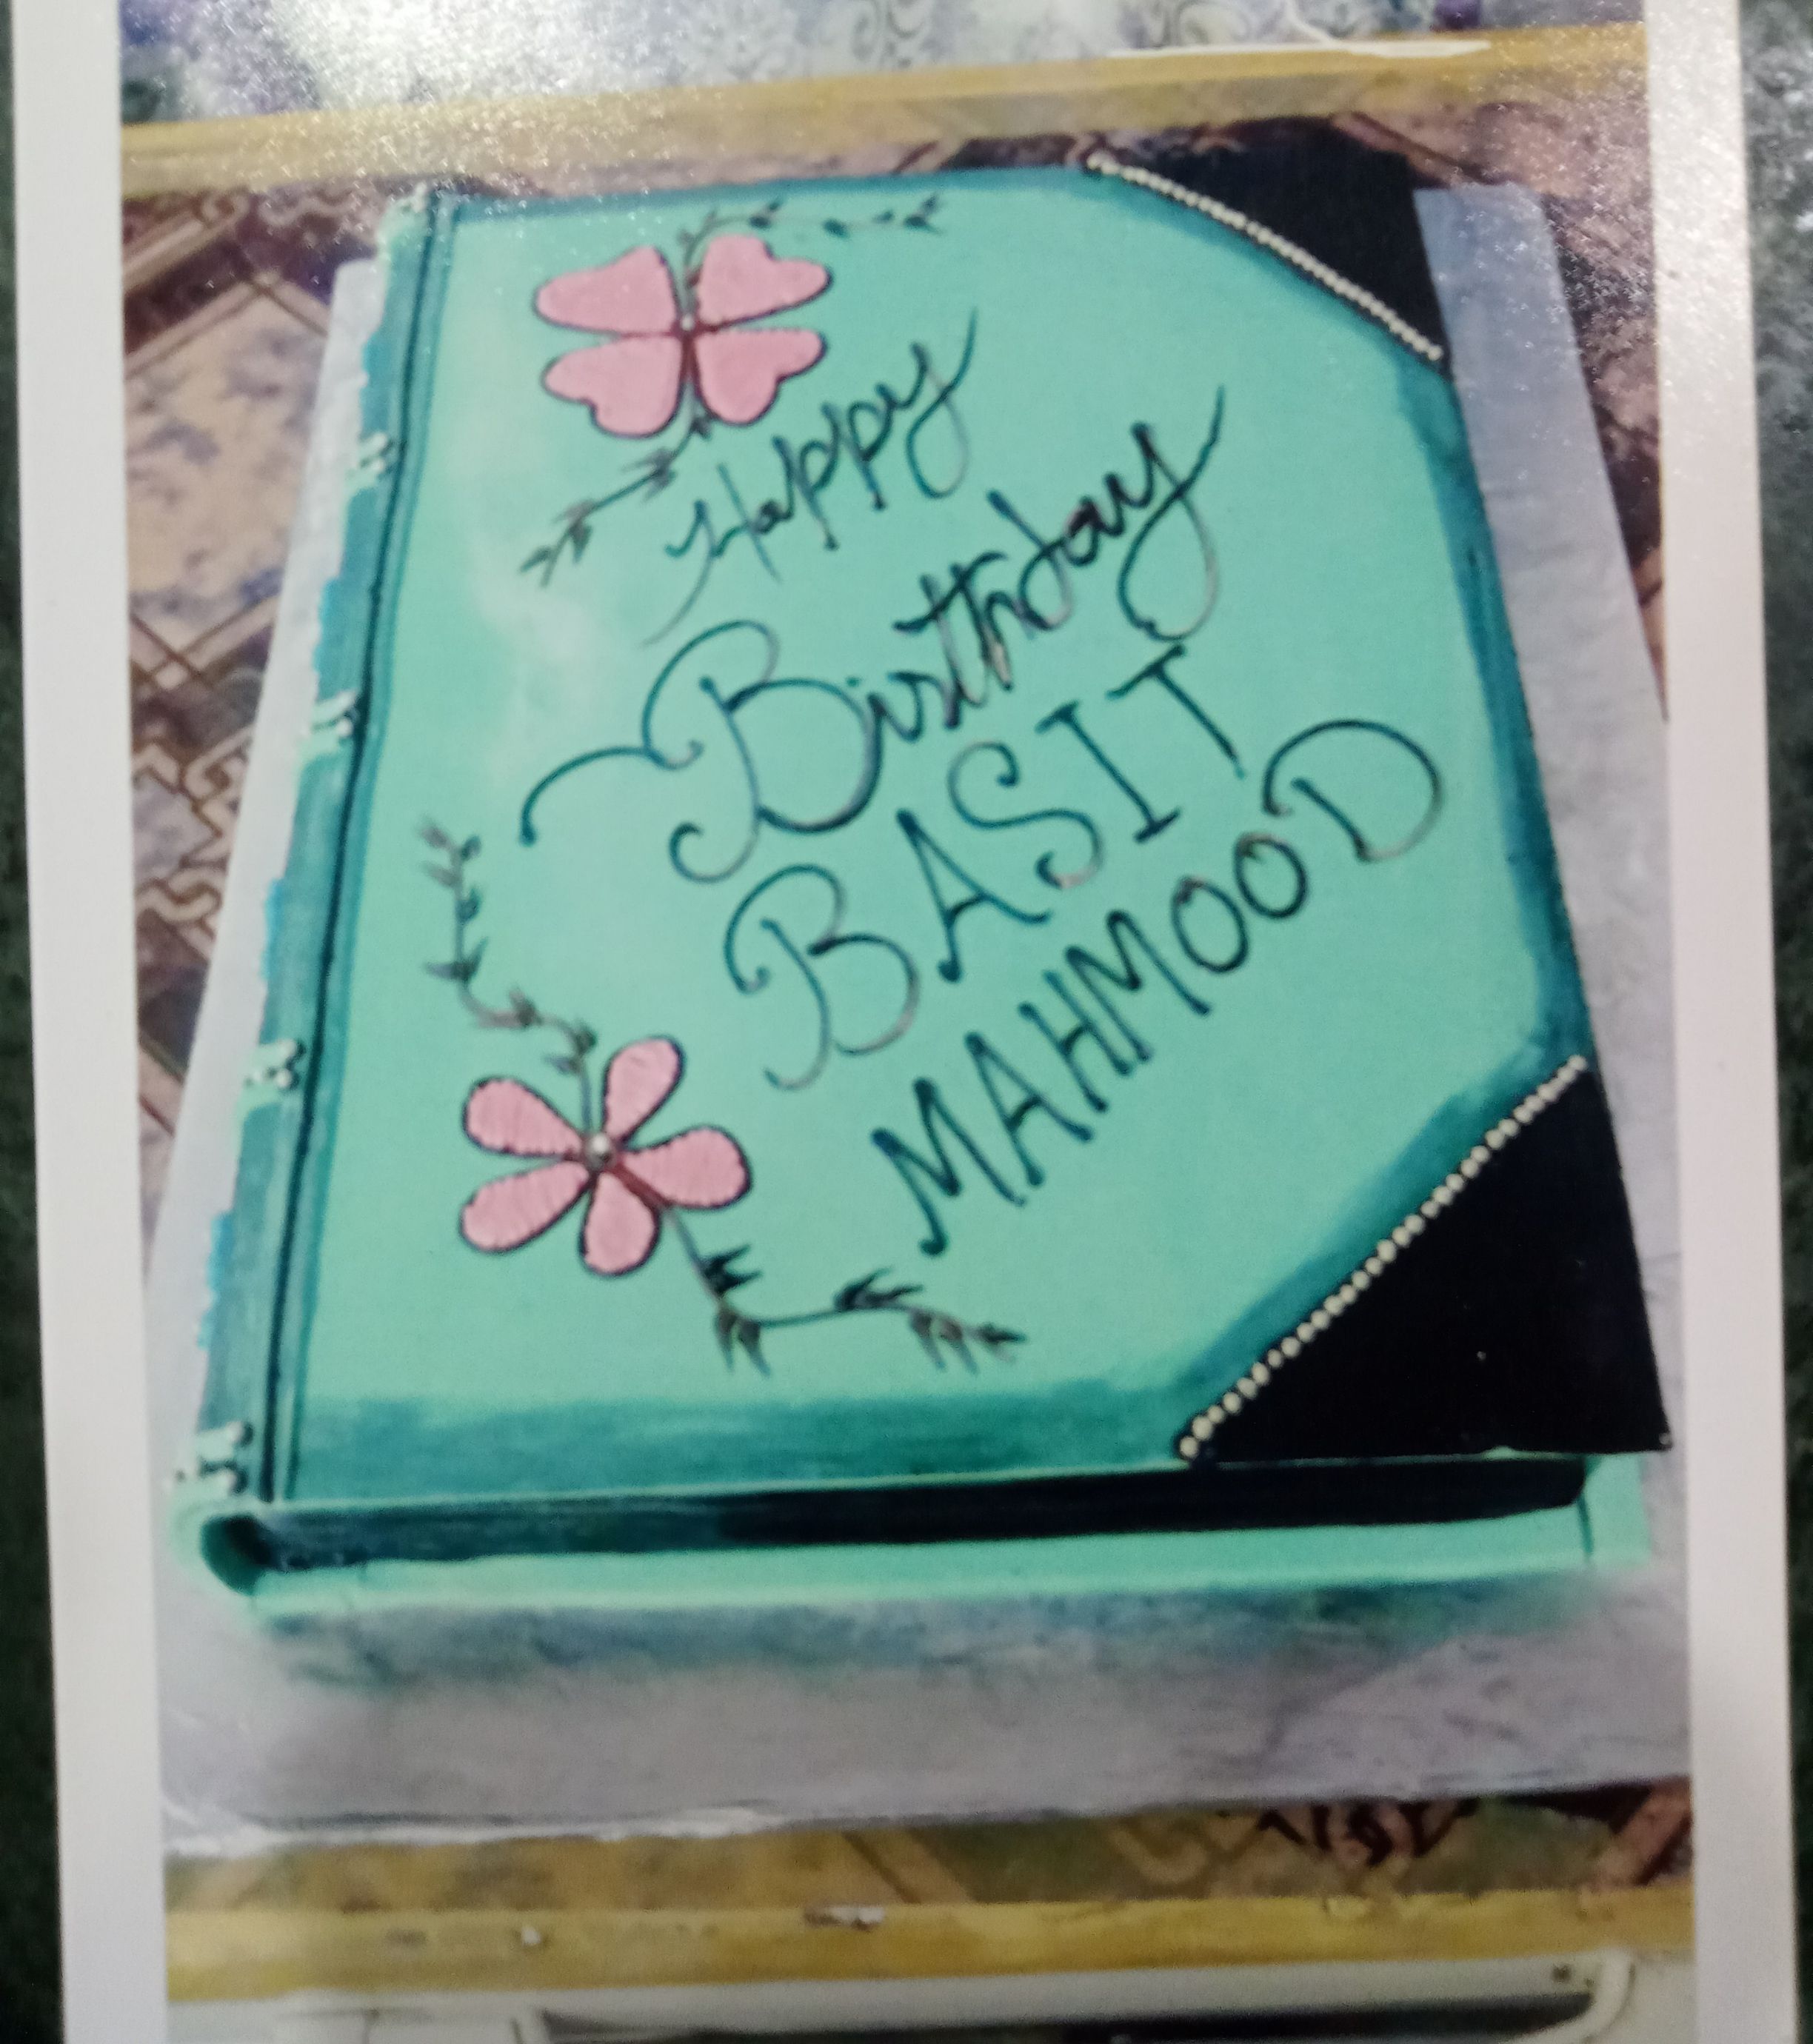 Happy
Birthday
BASIT
MAHMOOD